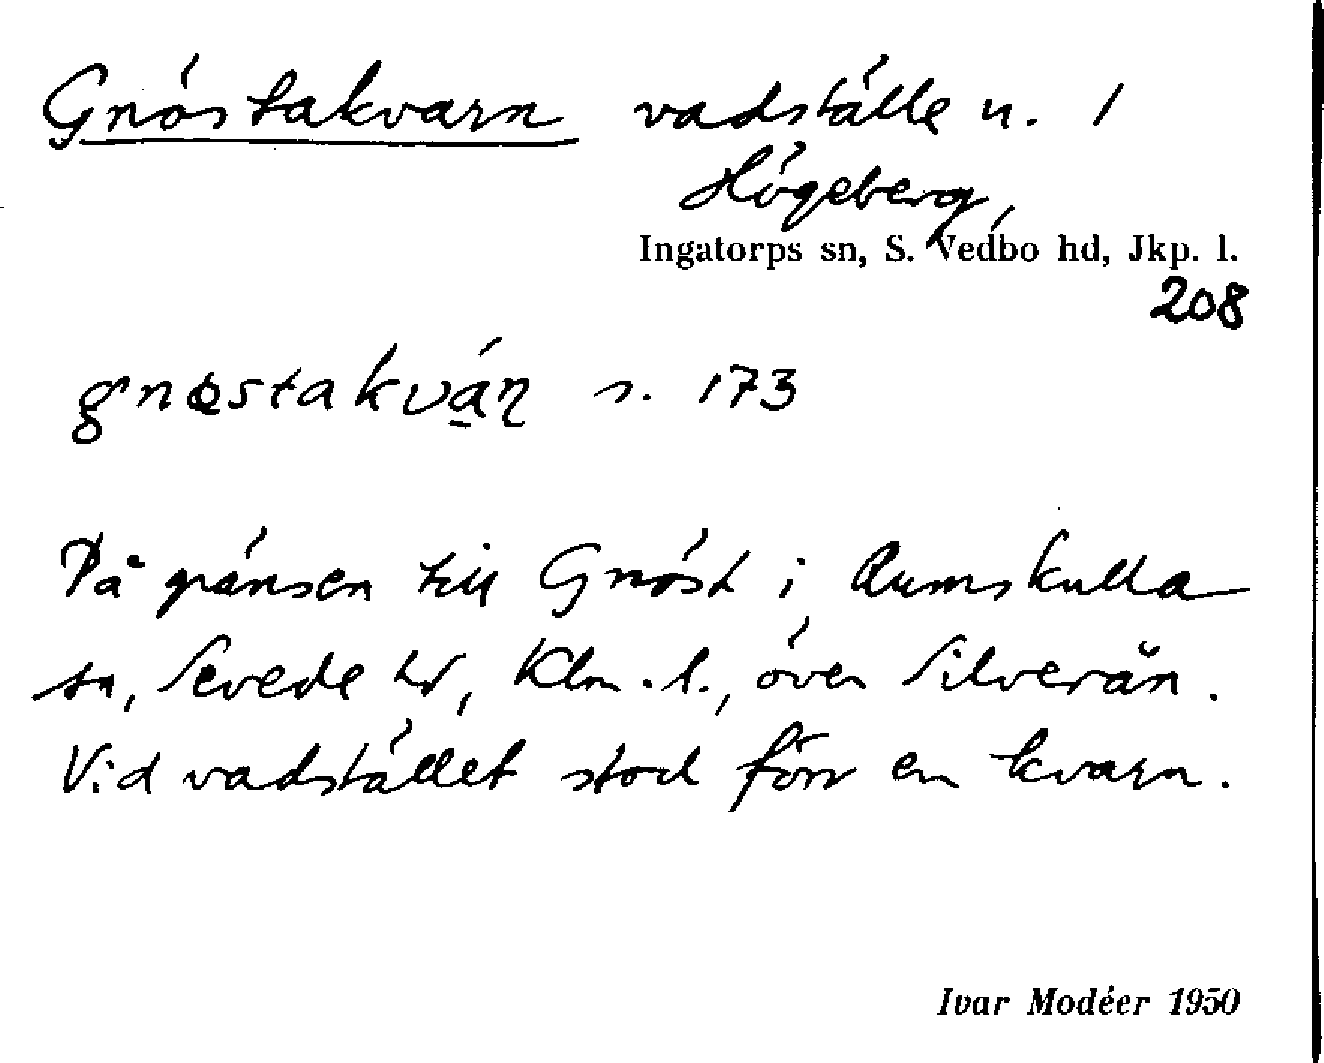 Gnöstakvarn vadställe n. 1
Högeberg,
Ingatorps sn, S. Vedbo hd, Jkp. l.
208
gnøstakvá̱ɳ s. 173
På gränsen till Gnöst i Rumskulla
sn, Sevede hd, Klm. l., över Silverån.
Vid vadstället stod förr en kvarn.
Ivar Modéer 1950